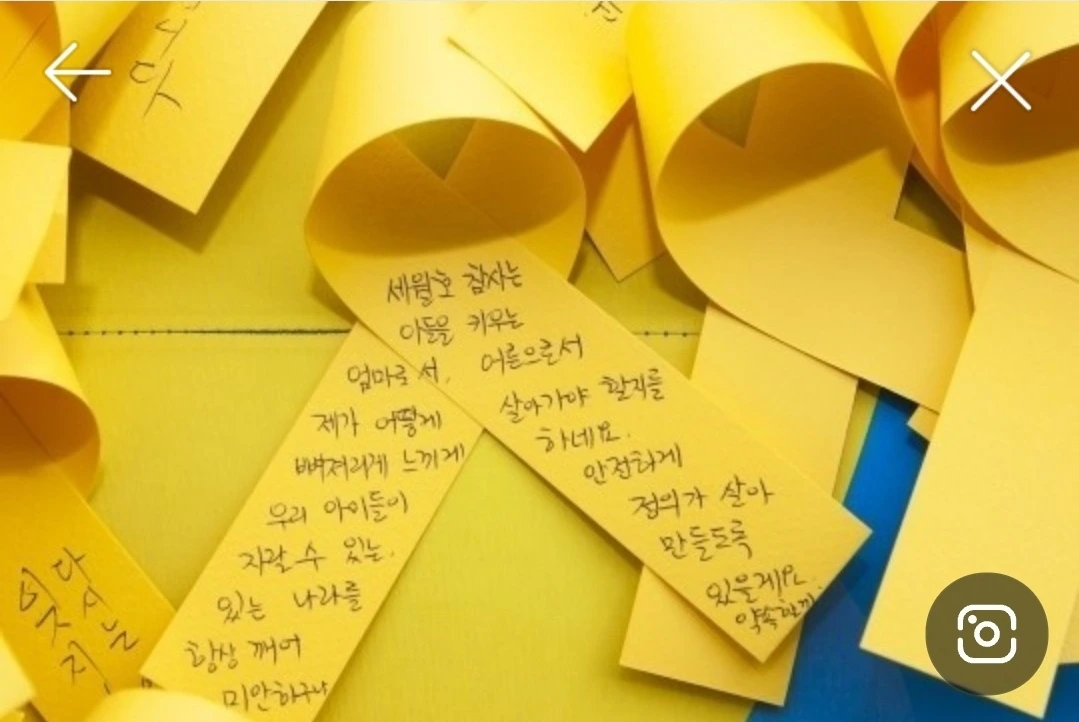 니다
세월호 참사는
아들을 키우는
엄마로서, 어른으로서
제가 어떻게 살아가야 할지를
뼈저리게 느끼게 하네요.
우리 아이들이 안전하게
자랄 수 있는, 정의가 살아
있는 나라를 만들도록
항상 깨어 있을게요.
미안하구나
다시는
잊지